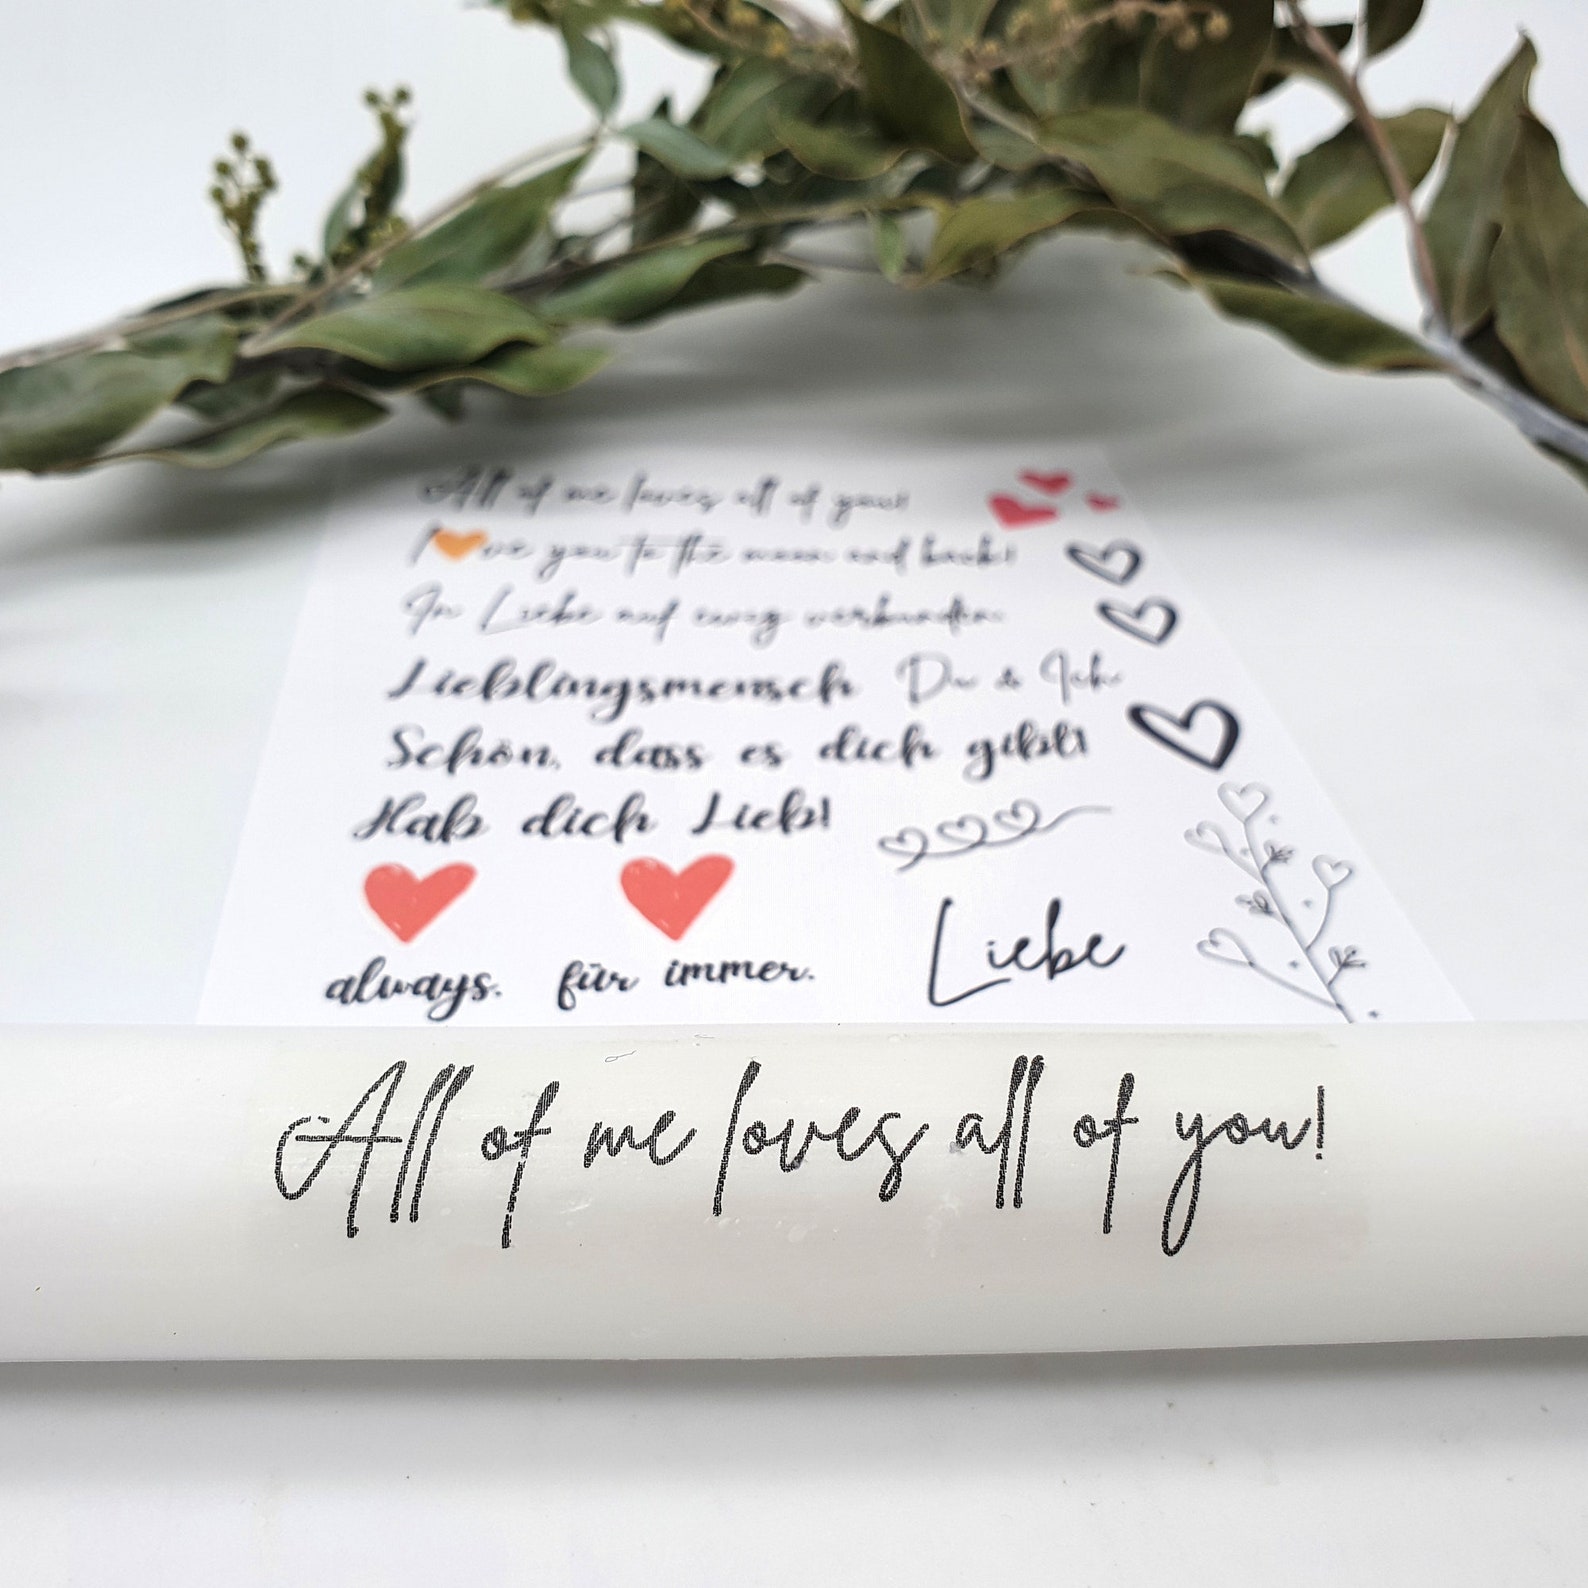 All of me loves all of you!
I love you to the moon and back!
In Liebe auf ewig verbunden.
Lieblingsmensch Du & Ich
Schön, dass es dich gibt!
Hab dich Lieb!
always. für immer. Liebe
All of me loves all of you!